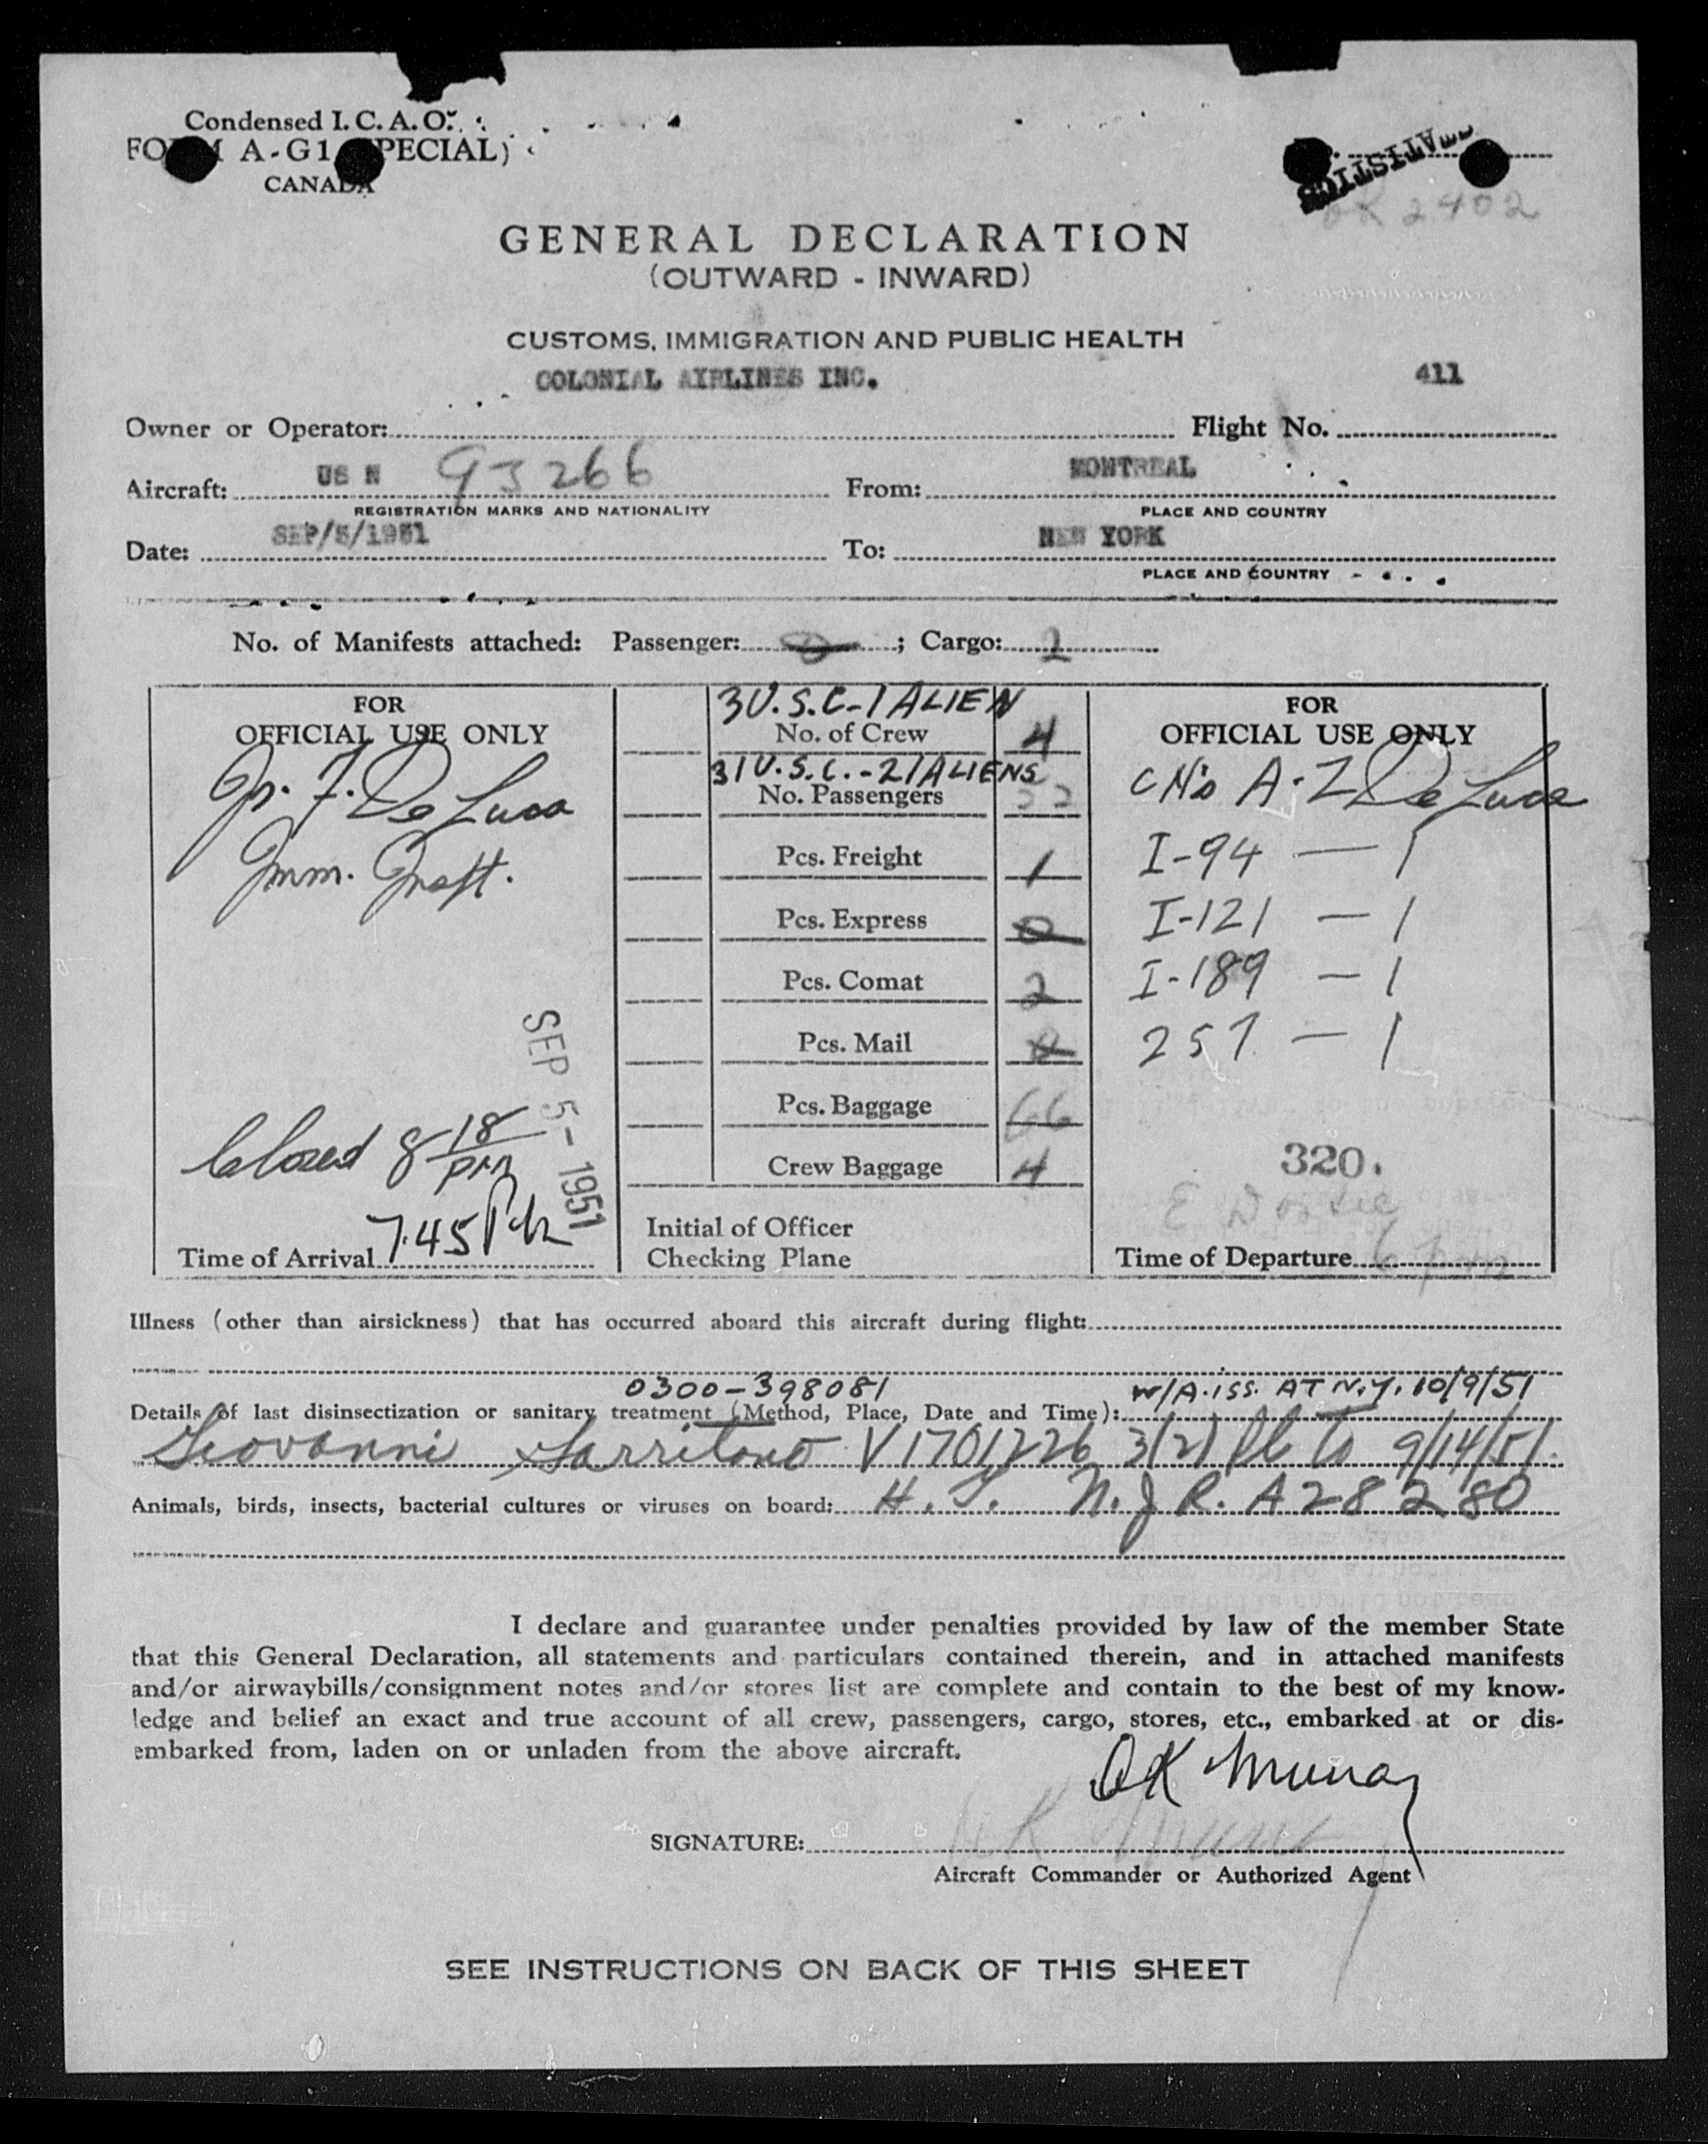 Condensed I. C. A. O.
FORM A-G1 (SPECIAL)
CANADA
STATISTICS
OK 2402
GENERAL DECLARATION
(OUTWARD - INWARD)
CUSTOMS, IMMIGRATION AND PUBLIC HEALTH
COLONIAL AIRLINES INC. 411
Owner or Operator: Flight No.
Aircraft: US N 93266 From: MONTREAL
REGISTRATION MARKS AND NATIONALITY PLACE AND COUNTRY
Date: SEP/5/1951 To: NEW YORK
PLACE AND COUNTRY
No. of Manifests attached: Passenger: 0; Cargo: 2
FOR
OFFICIAL USE ONLY
De Luca
Imm. Insp.
SEP 5-1951
Closed 8 18 pm
Time of Arrival 7.45 Pm
3 U.S.C-1 ALIEN
No. of Crew 4
31 U.S.C.-21 ALIENS
No. Passengers
Pcs. Freight 1
Pcs. Express 0
Pcs. Comat 2
Pcs. Mail 0
Pcs. Baggage 66
Crew Baggage 4
Initial of Officer
Checking Plane
FOR
OFFICIAL USE ONLY
De Luca
I-94 — 1
I-121 — 1
I-189 — 1
257 — 1
320.
Time of Departure
Illness (other than airsickness) that has occurred aboard this aircraft during flight:
0300-398081 W/A.iss. AT N.Y. 10/9/51
Details of last disinsectization or sanitary treatment (Method, Place, Date and Time):
Giovanni Sarritono V1701226 3(2) to 9/14/51.
Animals, birds, insects, bacterial cultures or viruses on board: N.J R. A 28 280
I declare and guarantee under penalties provided by law of the member State
that this General Declaration, all statements and particulars contained therein, and in attached manifests
and/or airwaybills/consignment notes and/or stores list are complete and contain to the best of my know-
ledge and belief an exact and true account of all crew, passengers, cargo, stores, etc., embarked at or dis-
embarked from, laden on or unladen from the above aircraft.
OK Murray
SIGNATURE:
Aircraft Commander or Authorized Agent
SEE INSTRUCTIONS ON BACK OF THIS SHEET